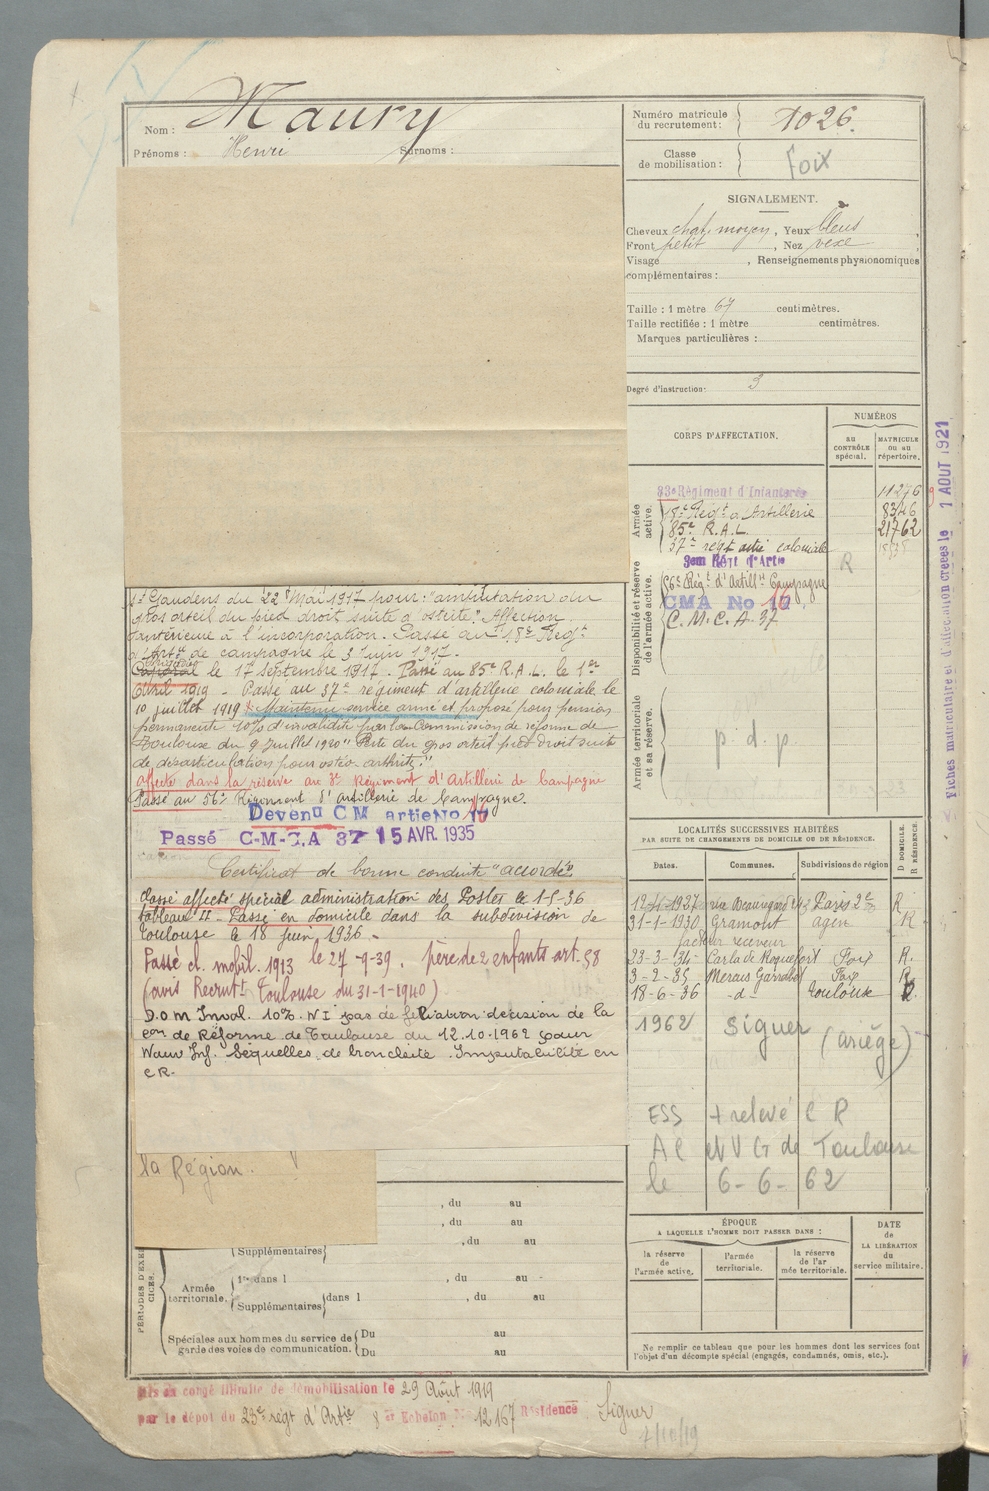 Nom : Maury
Prénoms : Henri Surnoms :
Numéro matricule du recrutement : 1026.
Classe de mobilisation : Foix
SIGNALEMENT.
Cheveux chat. moyen, Yeux bleus,
Front petit, Nez vexe
Visage , Renseignements physionomiques
complémentaires :
Taille : 1 mètre 67 centimètres.
Taille rectifiée : 1 mètre centimètres.
Marques particulières :
Degré d'instruction : 3
CORPS D'AFFECTATION.
NUMÉROS
au CONTRÔLE spécial.
MATRICULE ou au répertoire.
Armée active.
83e Régiment d'Infanterie 11276
18e Régt d'Artillerie 8346
85e R.A.L. 21762
37e régt artie coloniale
Disponibilité et réserve de l'armée active.
3em Régt d'Artie R
56e Régt d'Artill. Campagne
CMA No 16
C.M.C.A. 37
Armée territoriale et sa réserve.
p. d. p.
Fiches matriculaire et d'affectation créées le 1 AOUT 1921
St Gaudens du 22 Mai 1917 pour : "amputation du
gros orteil du pied droit, suite d'ostéite." Affection
antérieure à l'incorporation. Passé au 18e Régt
d'Artie de campagne le 3 Juin 1917.
le 17 septembre 1917. Passé au 85e R.A.L. le 1er
Avril 1919 - Passé au 37e régiment d'artillerie coloniale le
10 juillet 1919 Maintenu service armé et proposé pour pension
permanente 10% d'invalidité par la Commission de réforme de
Toulouse du 9 juillet 1920 "Perte du gros orteil pied droit suite
de désarticulation pour ostéo-arthrite."
affecté dans la réserve au 3e Régiment d'Artillerie de Campagne
Passé au 56e Régiment d'artillerie de Campagne.
Devenu C M artie No 16
Passé C-M-C.A 37 15 AVR. 1935
Certificat de bonne conduite "accordé"
Classé affecté spécial administration des Postes le 1-5-36
tableau II - Passé en domicile dans la subdivision de
Toulouse le 18 juin 1936. -
Passé cl. mobil. 1913 le 27-9-39. père de 2 enfants art. 58
(avis Recrutt Toulouse du 31-1-1940)
D.O.M Inval. 10%. N I pas de filiation décision de la
con de Réforme de Toulouse du 12.10.1962 pour
Nouv Inf. Séquelles de bronchite. Imputabilité en
C R.
LOCALITÉS SUCCESSIVES HABITÉES
PAR SUITE DE CHANGEMENTS DE DOMICILE OU DE RÉSIDENCE.
Dates. Communes. Subdivisions de région D DOMICILE. R RÉSIDENCE.
rue Beauregard Paris R
31-1-1930 Gramont agen R
facteur receveur
23-3-34 Carla de Roquefort Foix R.
3-2-35 Foix R
18-6-36 -d- Toulouse
1962 Siguer (ariège)
ESS + relevé C R
AC et V G de Toulouse
le 6-6-62
la Région.
, du au
, du au
Supplémentaires , du au
PÉRIODES D'EXERCICES.
Armée territoriale.
1re dans l , du au
Supplémentaires dans l , du au
Spéciales aux hommes du service de garde des voies de communication.
Du au
Du au
ÉPOQUE
A LAQUELLE L'HOMME DOIT PASSER DANS :
la réserve de l'armée active.
l'armée territoriale.
la réserve de l'armée territoriale.
DATE de LA LIBÉRATION du service militaire.
Ne remplir ce tableau que pour les hommes dont les services font
l'objet d'un décompte spécial (engagés, condamnés, omis, etc.).
Mis en congé illimité de démobilisation le 29 Août 1919
par le dépôt du 23e régt d'Artie Echelon No 12167 Résidence Siguer